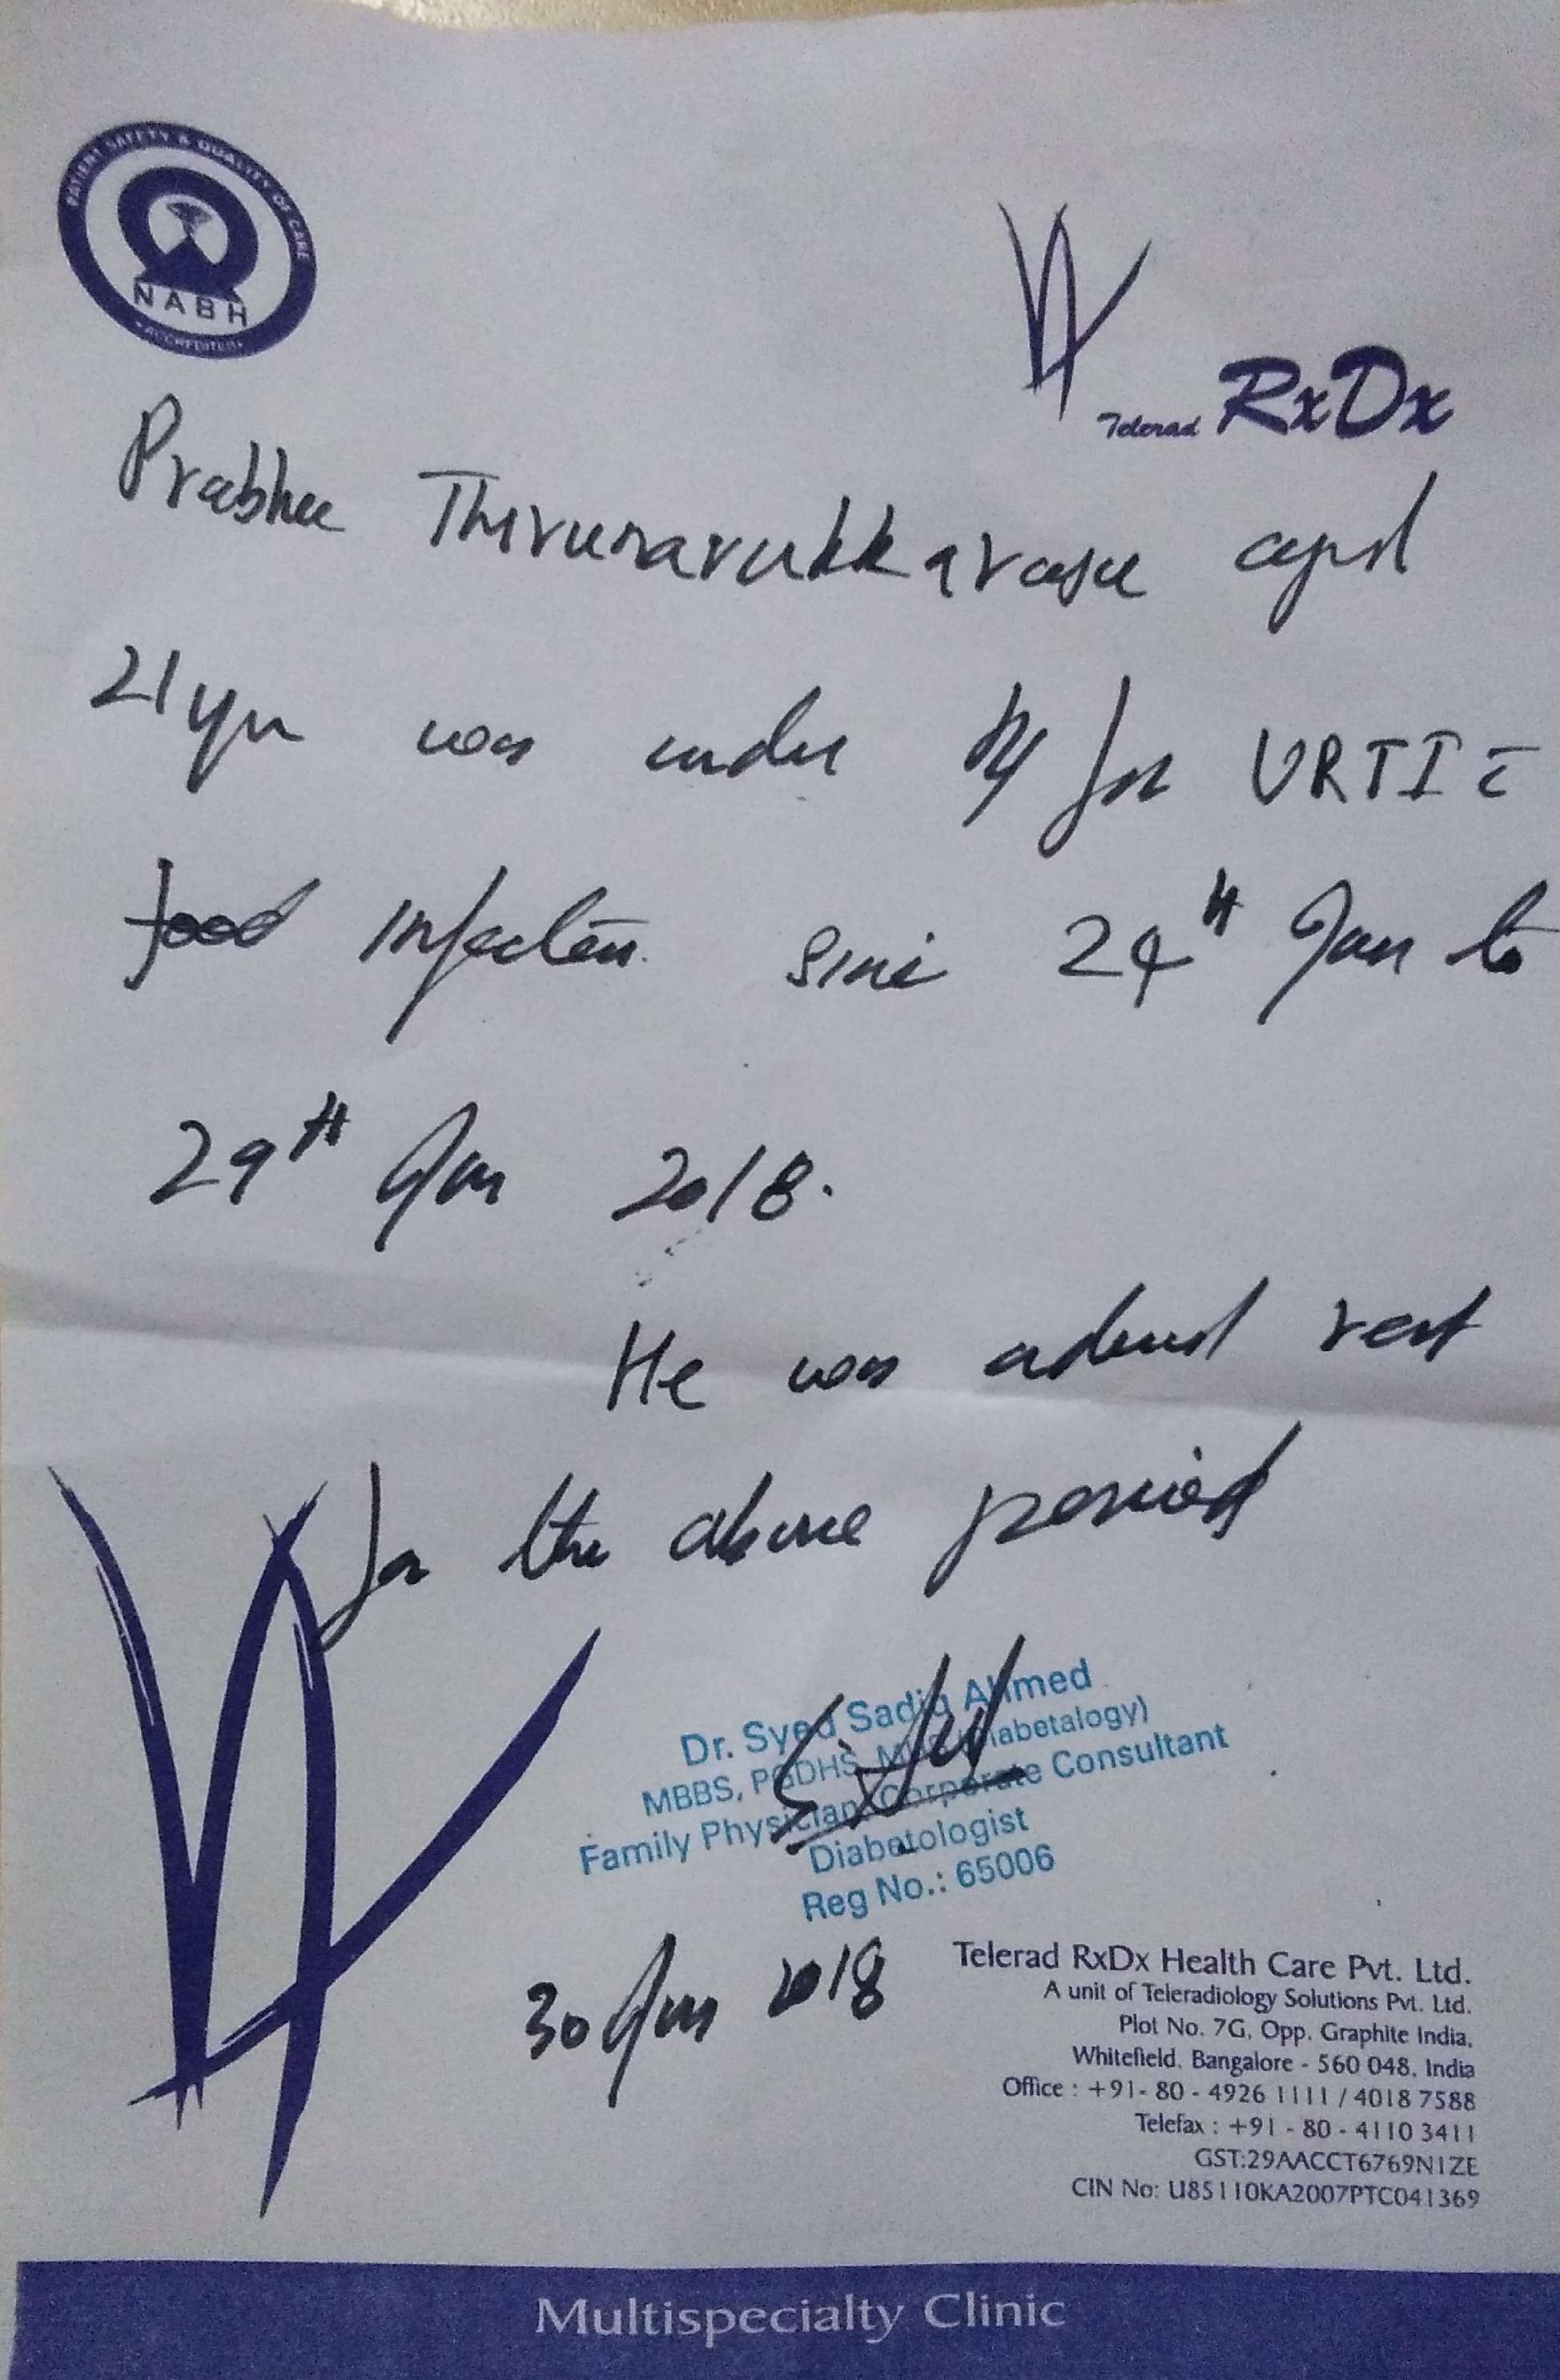 PATIENT SAFETY & QUALITY OF CARE
NABH
ACCREDITED
Telerad RxDx
Prabhu Thirunavukkarasu aged
21 yrs was under for URTI c̄
food infection since 24th Jan to
29th Jan 2018.
He was advised rest
for the above period
Dr. Syed Sadiq Ahmed
MBBS, PGDHS, (Diabetalogy)
Family Physician, Corporate Consultant
Diabetologist
Reg No.: 65006
30 Jan 2018
Telerad RxDx Health Care Pvt. Ltd.
A unit of Teleradiology Solutions Pvt. Ltd.
Plot No. 7G, Opp. Graphite India,
Whitefield, Bangalore - 560 048, India
Office : +91- 80 - 4926 1111 / 4018 7588
Telefax : +91 - 80 - 4110 3411
GST:29AACCT6769N1ZE
CIN No: U85110KA2007PTC041369
Multispecialty Clinic